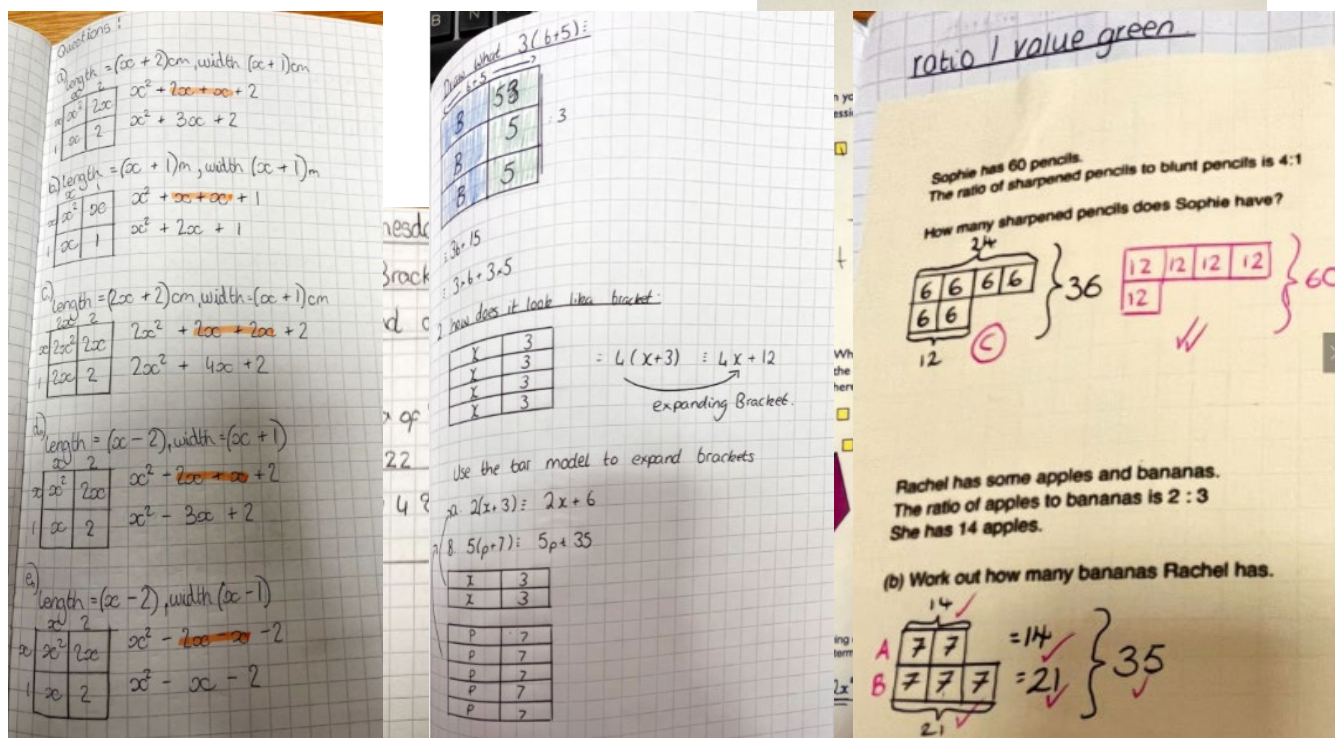 Questions:
a) length = (x + 2)cm, width (x + 1)cm
x 2
x x² 2x
1 x 2
x² + 2x + x + 2
x² + 3x + 2
b) length = (x + 1)m, width (x + 1)m
x 1
x x² x
1 x 1
x² + x + x + 1
x² + 2x + 1
c) length = (2x + 2)cm, width = (x + 1)cm
2x 2
x 2x² 2x
1 2x 2
2x² + 2x + 2x + 2
2x² + 4x + 2
d) length = (x - 2), width = (x + 1)
x 2
x x² 2x
1 x 2
x² - 2x + x + 2
x² - 3x + 2
e) length = (x - 2), width (x - 1)
x 2
x x² 2x
1 x 2
x² - 2x - x - 2
x² - x - 2
nesd
Brack
of
22
48
B N
Draw what 3(b+5)=
b+5
B
B 5
B 5
: 3
= 3b+15
= 3×b + 3×5
2 how does it look like bracket:
x 3
x 3
x 3
x 3
= 4(x+3) = 4x + 12
expanding Bracket.
Use the bar model to expand brackets
a. 2(x+3) = 2x + 6
B. 5(p+7) = 5p+ 35
x 3
x 3
P 7
P 7
P 7
P 7
P 7
Wh
the
her
ing
term
2x
ratio 1 value green
Sophie has 60 pencils.
The ratio of sharpened pencils to blunt pencils is 4:1
How many sharpened pencils does Sophie have?
24
6 6 6 6
6 6
12
36
C
12 12 12 12
12
60
Rachel has some apples and bananas.
The ratio of apples to bananas is 2 : 3
She has 14 apples.
(b) Work out how many bananas Rachel has.
14
A 7 7 =14
B 7 7 7 =21
21
35